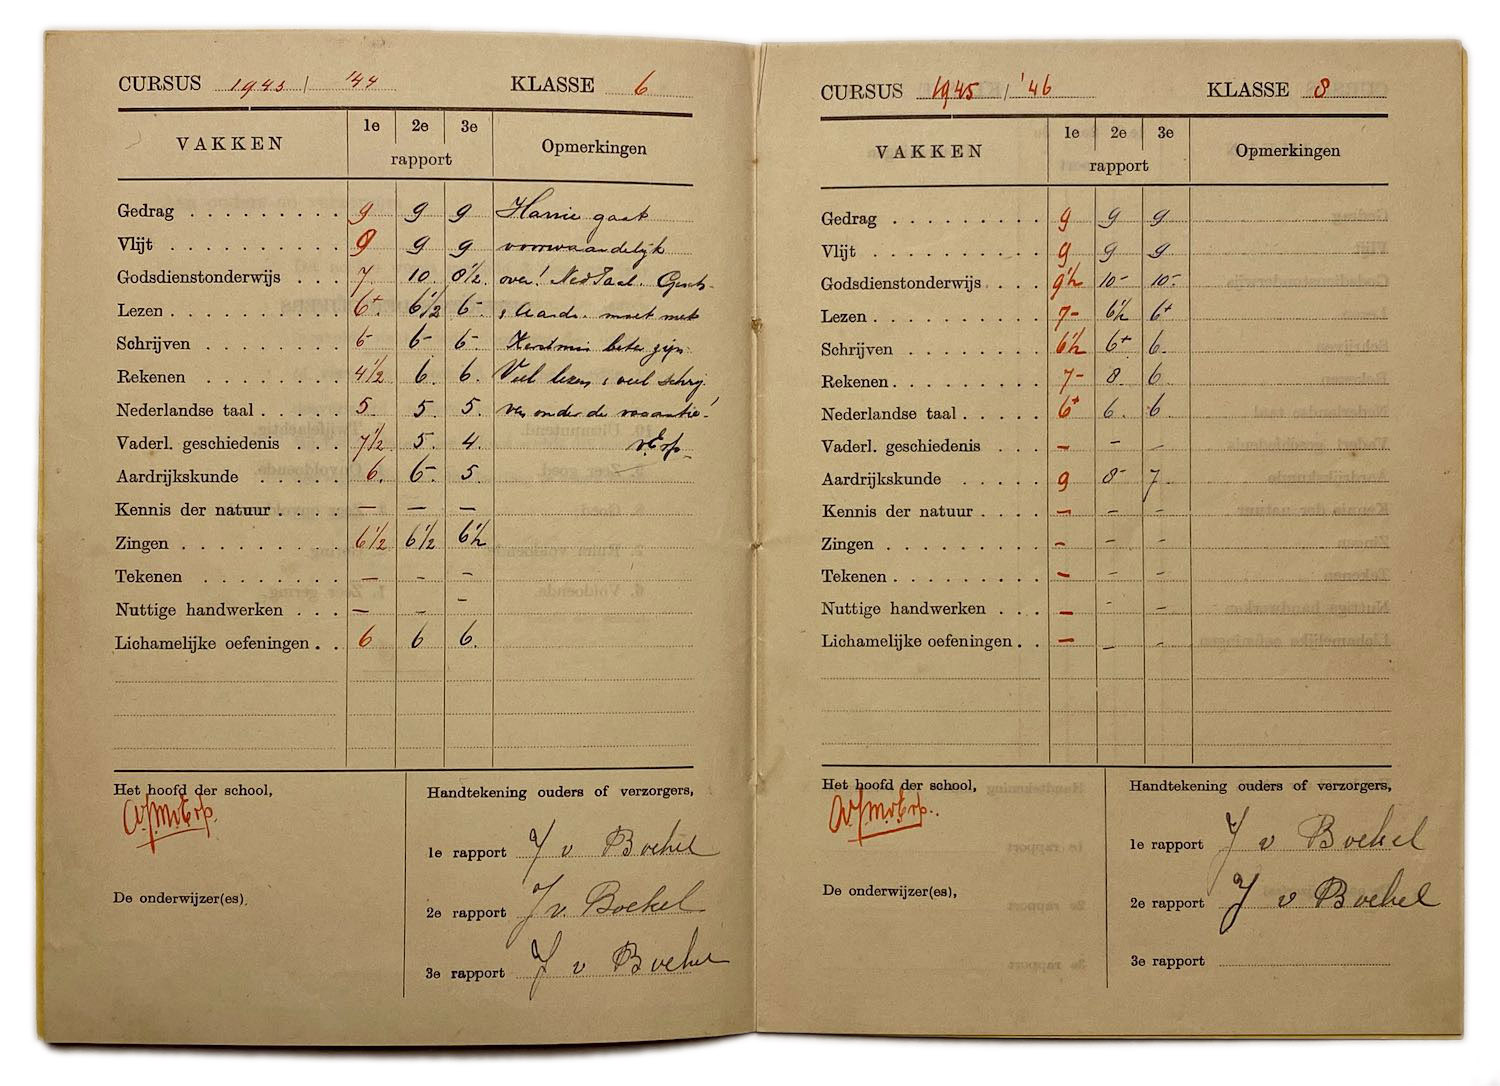 CURSUS 1943 / '44 KLASSE 6
VAKKEN 1e 2e 3e rapport Opmerkingen
Gedrag 9 9 9 Harrie gaat
Vlijt 9 9 9 voorwaardelijk
Godsdienstonderwijs 7 10 8 1/2 over! Ned Taal. Gesch-
Lezen 6+ 6 1/2 6- & Aardr. moet met
Schrijven 6- 6- 6- Kerstmis beter zijn
Rekenen 4 1/2 6. 6. Veel lezen & veel schrij
Nederlandse taal 5. 5. 5. ven onder de vacantie!
Vaderl. geschiedenis 7 1/2 5. 4. v Erp
Aardrijkskunde 6. 6- 5
Kennis der natuur — — —
Zingen 6 1/2 6 1/2 6 1/2
Tekenen — - -
Nuttige handwerken — - -
Lichamelijke oefeningen 6 6 6.
Het hoofd der school,
Handtekening ouders of verzorgers,
1e rapport J v Boekel
De onderwijzer(es),
2e rapport J v. Boekel
3e rapport J v Boekel
CURSUS 1945 / '46 KLASSE 8
VAKKEN 1e 2e 3e rapport Opmerkingen
Gedrag 9 9 9
Vlijt 9 9 9
Godsdienstonderwijs 9 1/2 10- 10-
Lezen 7- 6 1/2 6+
Schrijven 6 1/2 6+ 6.
Rekenen 7- 8. 6
Nederlandse taal 6+ 6. 6
Vaderl. geschiedenis - - -
Aardrijkskunde 9 8- 7
Kennis der natuur - - -
Zingen - - -
Tekenen - - -
Nuttige handwerken - - -
Lichamelijke oefeningen - - -
Het hoofd der school,
Handtekening ouders of verzorgers,
1e rapport J v Boekel
De onderwijzer(es),
2e rapport J v Boekel
3e rapport